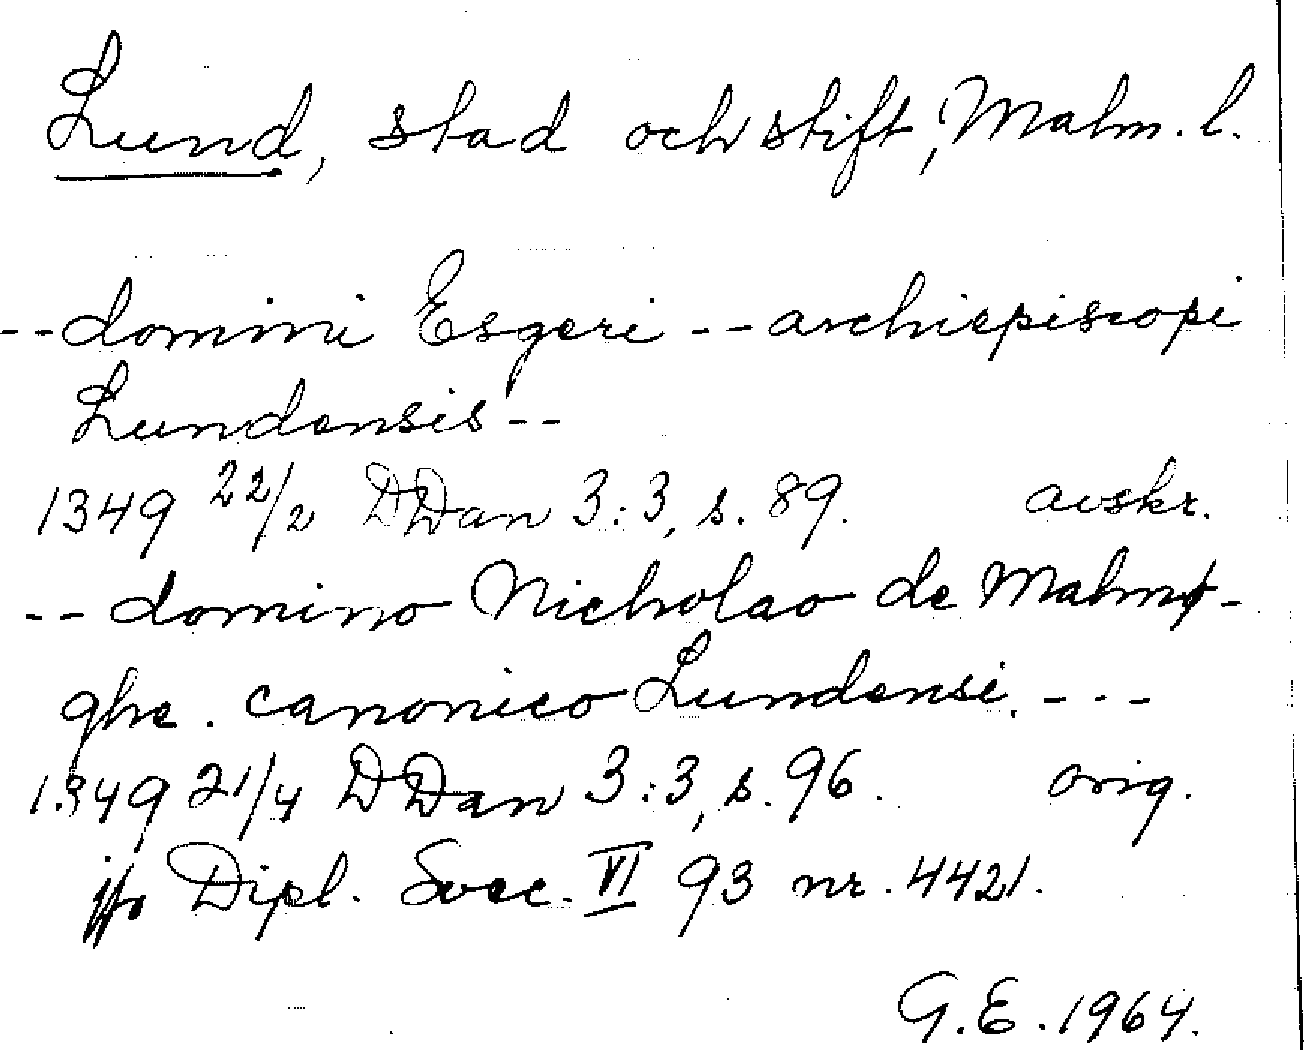 Lund, stad och stift, Malm. l.
-- domini Esgeri -- archiepiscopi
Lundensis --
1349 22/2 DDan 3:3, s. 89. avskr.
-- domino Nicholao de Malmø-
ghe. canonico Lundensi. - - -
1349 21/4 DDan 3:3, s. 96. orig.
jfr Dipl. Svec. VI 93 nr. 4421.
G.E. 1964.